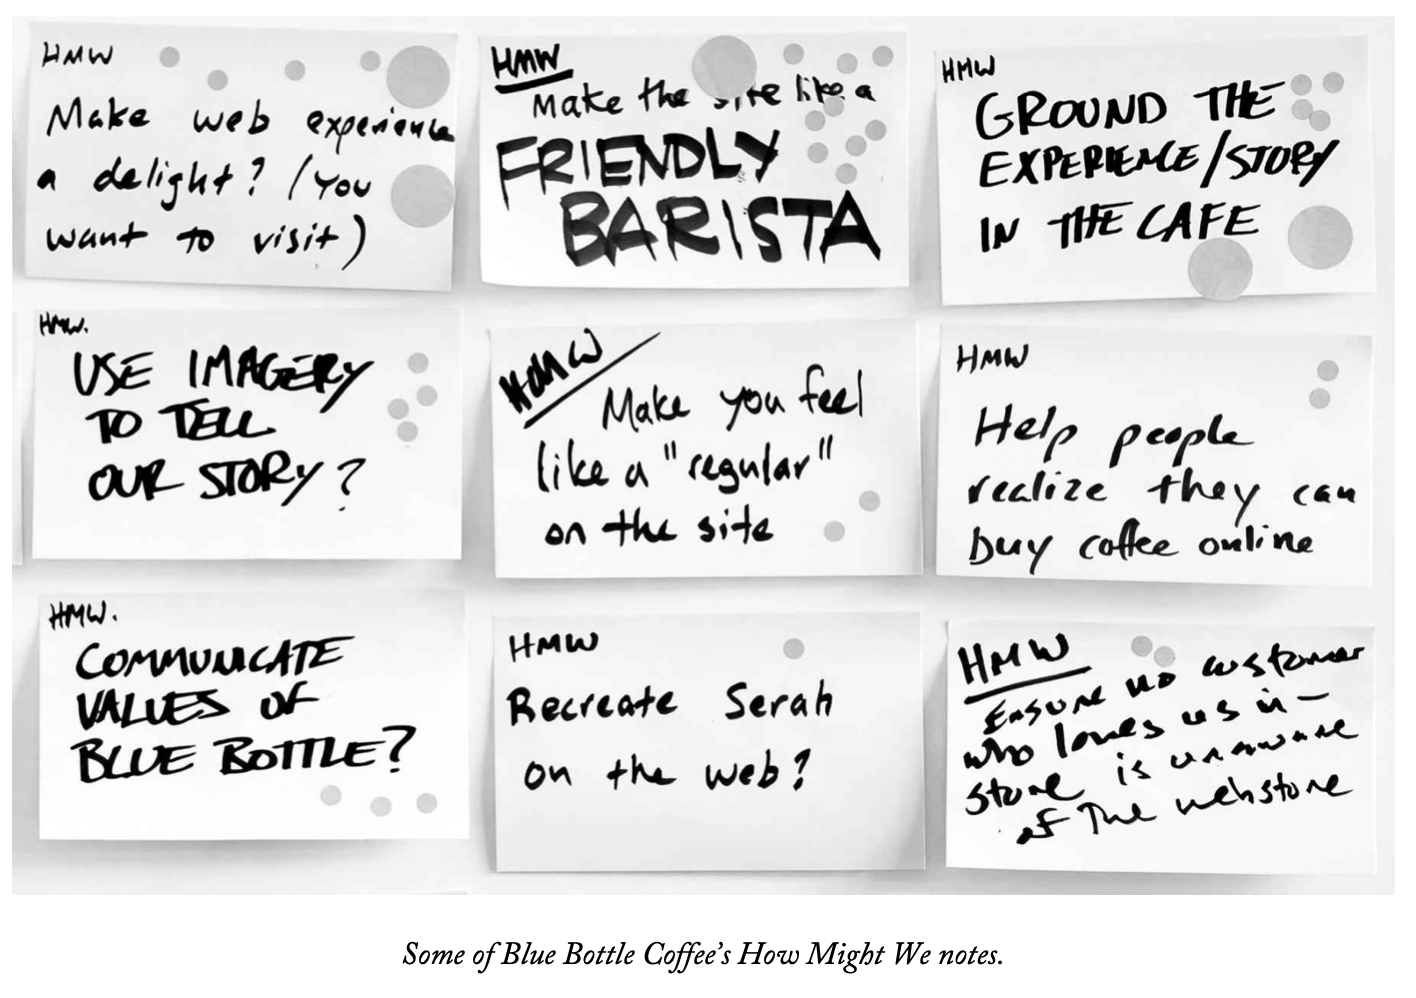 HMW
Make web experience
a delight? (You
want to visit)
HMW
Make the site like a
FRIENDLY
BARISTA
HMW
GROUND THE
EXPERIENCE/STORY
IN THE CAFE
HMW.
USE IMAGERY
TO TELL
OUR STORY?
HMW
Make you feel
like a "regular"
on the site
HMW
Help people
realize they can
buy coffee online
HMW.
COMMUNICATE
VALUES OF
BLUE BOTTLE?
HMW
Recreate Serah
on the web?
HMW
Ensure no customer
who loves us in-
store is unaware
of The webstore
Some of Blue Bottle Coffee's How Might We notes.